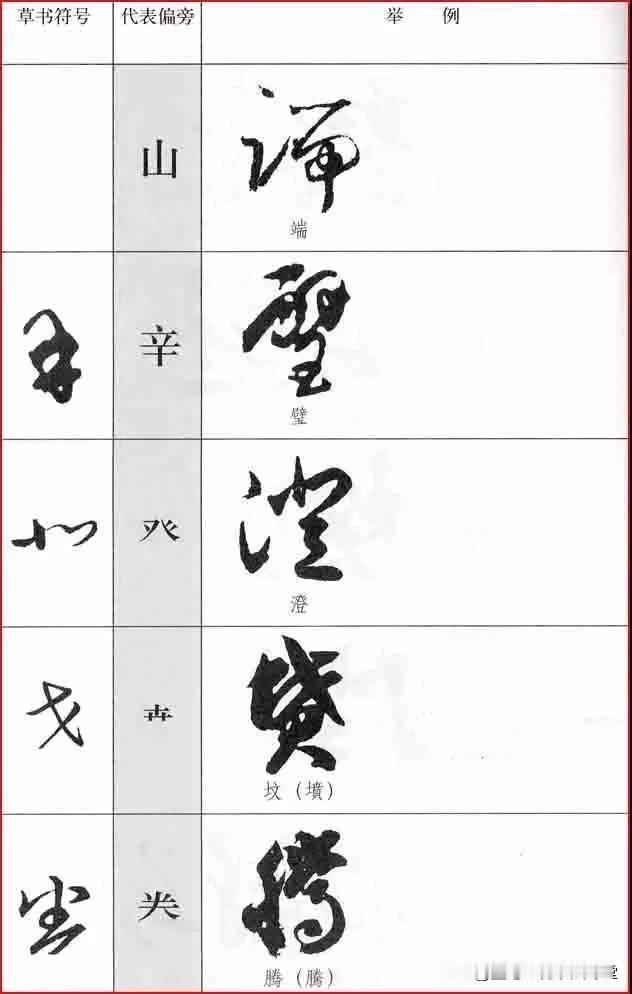 草书符号 代表偏旁 举例
山
端
辛
璧
癶
澄
卉
坟（墳）
腾（騰）